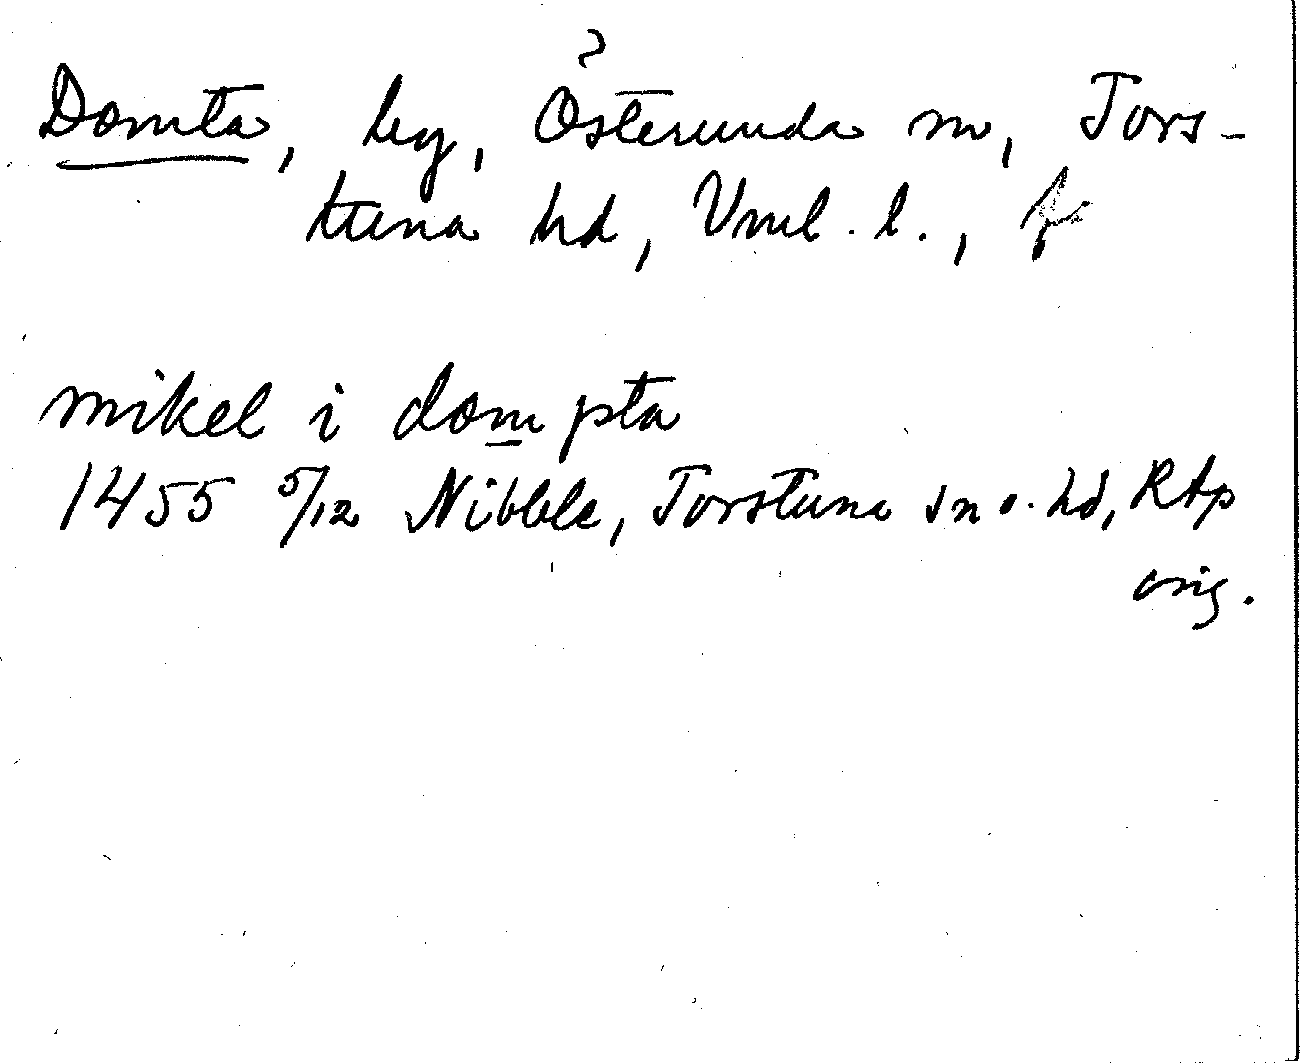 ?
Domta, by, Österunda sn, Tors-
tuna hd, Vml. l.,
mikel i dompta
1455 5/12 Nibble, Torstuna sn o. hd, RAp
orig.